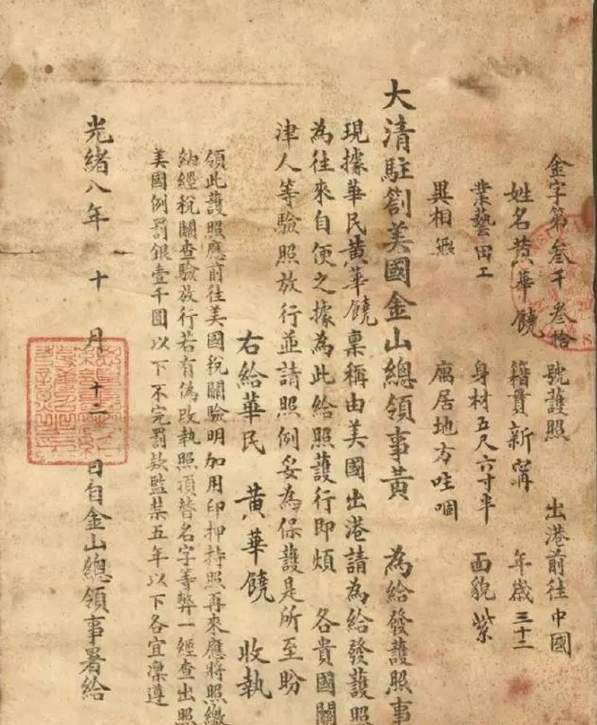 金字第叁千叁拾號護照 出港前往中國
姓名黃華饒 籍貫新甯 年歲三十二
業藝田工 身材五尺六寸半 面貌紫
異相無 寓居地方哇啁
大清駐劄美國金山總領事黃 為給發護照事
現據華民黃華饒稟稱由美國出港請為給發護照
為往來自便之據為此給照護行即煩 各貴國關
津人等驗照放行並請照例妥為保護是所至盼
右給華民 黃華饒 收執
領此護照應前往美國稅關驗明加用印押持照再來應將照繳
納經稅關查驗放行若有偽改執照頂替名字等弊一經查出照
美國例罰銀壹千圓以下不完罰款監禁五年以下各宜凜遵
光緒八年 十 月 十二 日自金山總領事署給